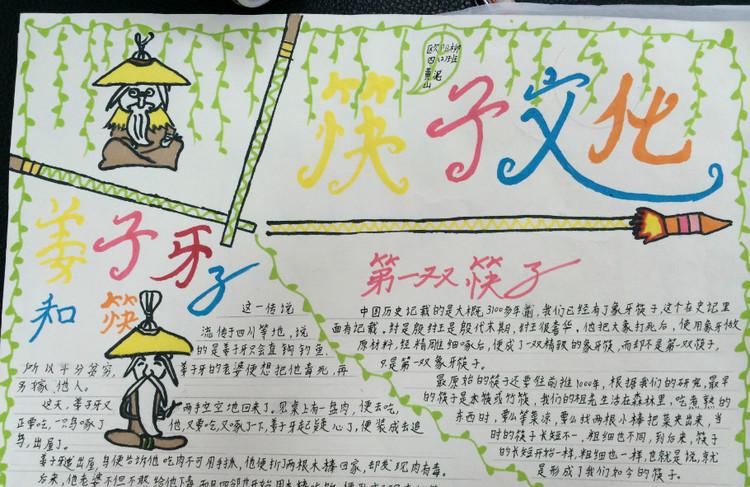 筷子文化
四(2)班
姜子牙
和筷子
这一传说
流传于四川等地,说
的是姜子牙只会直钩钓鱼,
所以十分穷穷,姜子牙的老婆便想把他毒死,再
另嫁他人。
这天,姜子牙又两手空空地回来了。见桌上有一盘肉,便去吃,
正要吃,一只鸟啄了他,又要吃,又啄了一下,姜子牙起疑心了,便装成去追
鸟,出屋了。
姜子牙追出屋,鸟便告诉他吃肉不可用手抓,他便折了两根木棒回家,却发现肉有毒。
第一双筷子
中国历史记载的是大概3100多年前,我们已经有了象牙筷子,这个在史记里
面有记载,纣是殷纣王是殷代末期,纣王很奢华,他把大象打死后,使用象牙做
原材料,经精雕细啄后,便成了一双精致的象牙筷,而却不是第一双筷子,
只是第一双象牙筷子。
最原始的筷子还要往前推1000年,根据我们的研究,最早
的筷子是木筷或竹筷,我们的祖老生活在森林里,吃煮熟的
东西时,要么等菜凉,要么找两根小棒把菜夹出来,当
时的筷子长短不一,粗细也不同,到后来,筷子
的长短开始一样,粗细也一样,也就是说,就
是形成了我们如今的筷子。